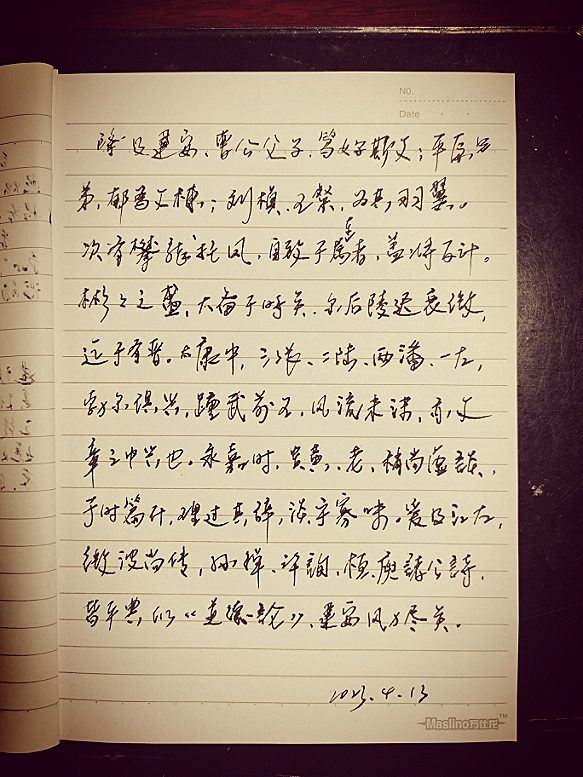 NO.
Date
降及建安、曹公父子、笃好斯文；平原兄
弟，郁为文栋；刘桢、王粲，为其羽翼。
次有攀龙托凤，自致于属车者，盖将百计。
彬彬之盛，大备于时矣。尔后陵迟衰微，
迄于有晋。太康中，三张、二陆、两潘、一左，
勃尔俱兴，踵武前王，风流未沫，亦文
章之中兴也。永嘉时，贵黄、老，稍尚虚談，
于时篇什，理过其辞，淡乎寡味。爰及江左，
微波尚传，孙绰、许詢、桓、庾諸公詩，
皆平典似《道德论》，建安风力尽矣。
2023.4.13
Maslino万仕龙™